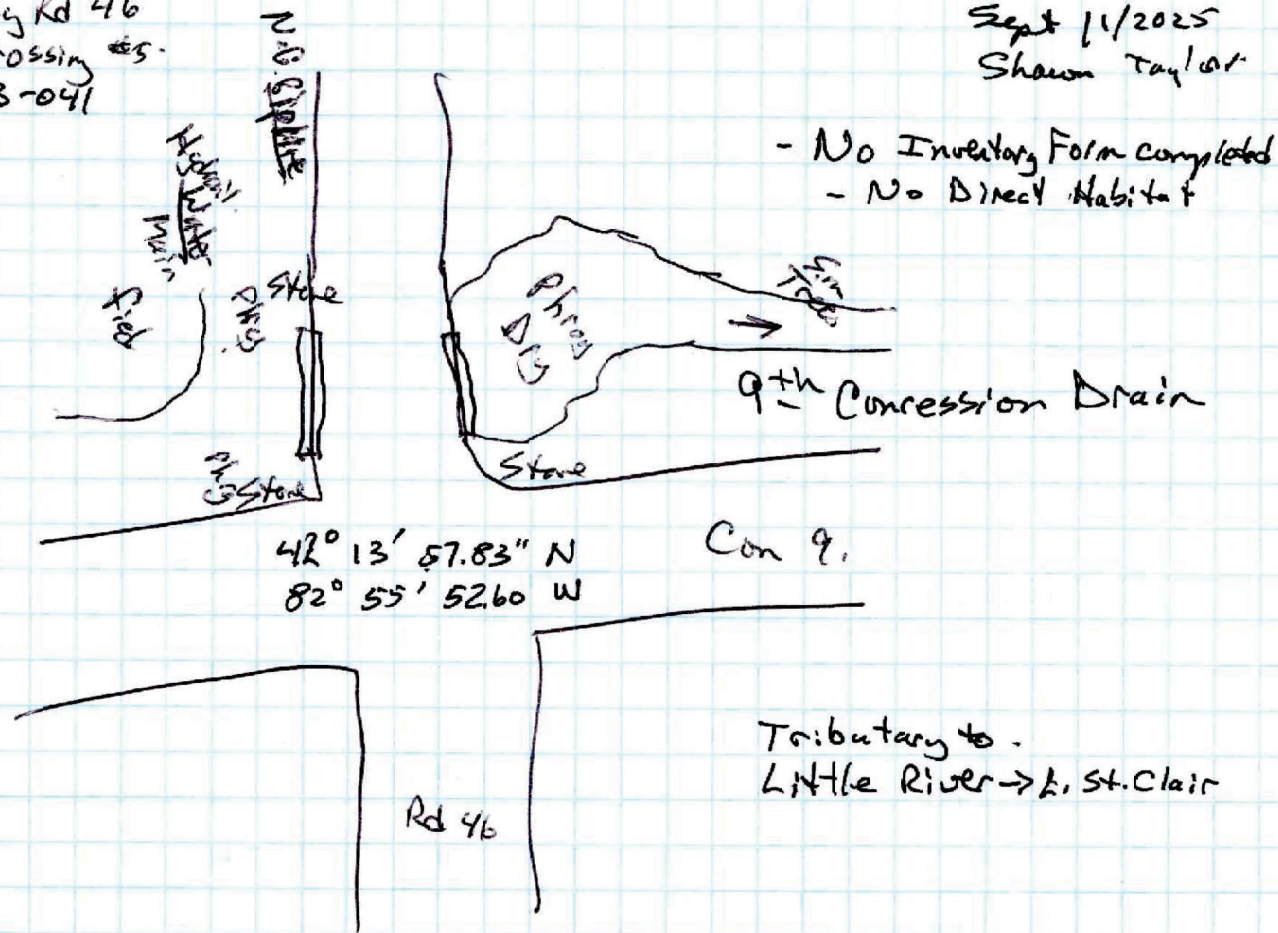 y Rd 46
ossing #5.
3-041
Sept 11/2025
Shawn Taylor
- No Inventory Form completed
- No Direct Habitat
Water
Main
Stone
Phrag
Dry
Trees
9th Concession Drain
Stone
Stone
42° 13' 57.83" N
82° 55' 52.60 W
Con 9.
Tributary to.
Little River → L. St. Clair
Rd 46